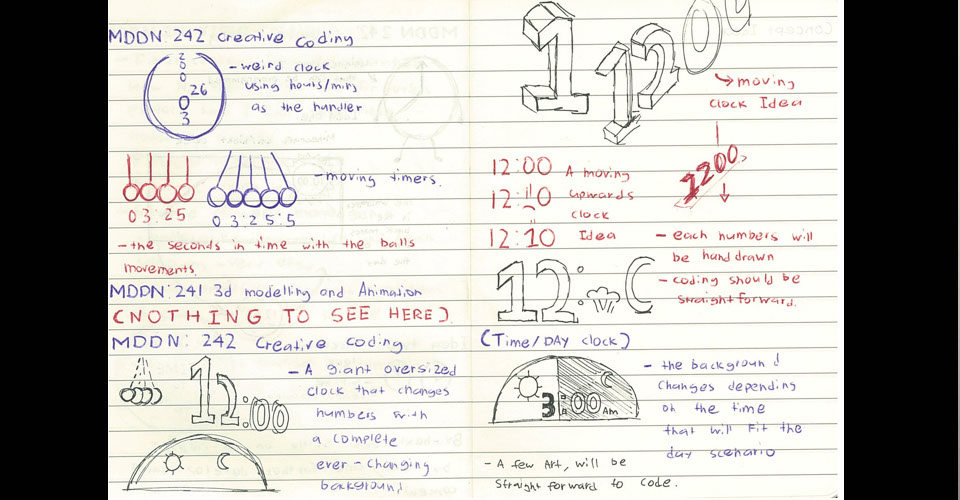 MDDN: 242 Creative Coding
2
0
0
26
0
3
- weird clock
using hours/mins
as the handler
03:25
03:25:5
- moving timers.
- the seconds in time with the balls
movements.
MDDN: 241 3d modelling and Animation
(NOTHING TO SEE HERE).
MDDN: 242 Creative Coding
12:00
- A giant oversized
clock that changes
numbers with
a complete
ever-changing
background
1
1200
moving
clock Idea
1200
12:00
12:10
12:10
A moving
upwards
clock
Idea
- each numbers will
be hand drawn
- coding should be
straight forward.
12:
(Time/DAY clock)
3:00 Am
- the background
changes depending
on the time
that will Fit the
day scenario
- A few Art, will be
straight forward to code.